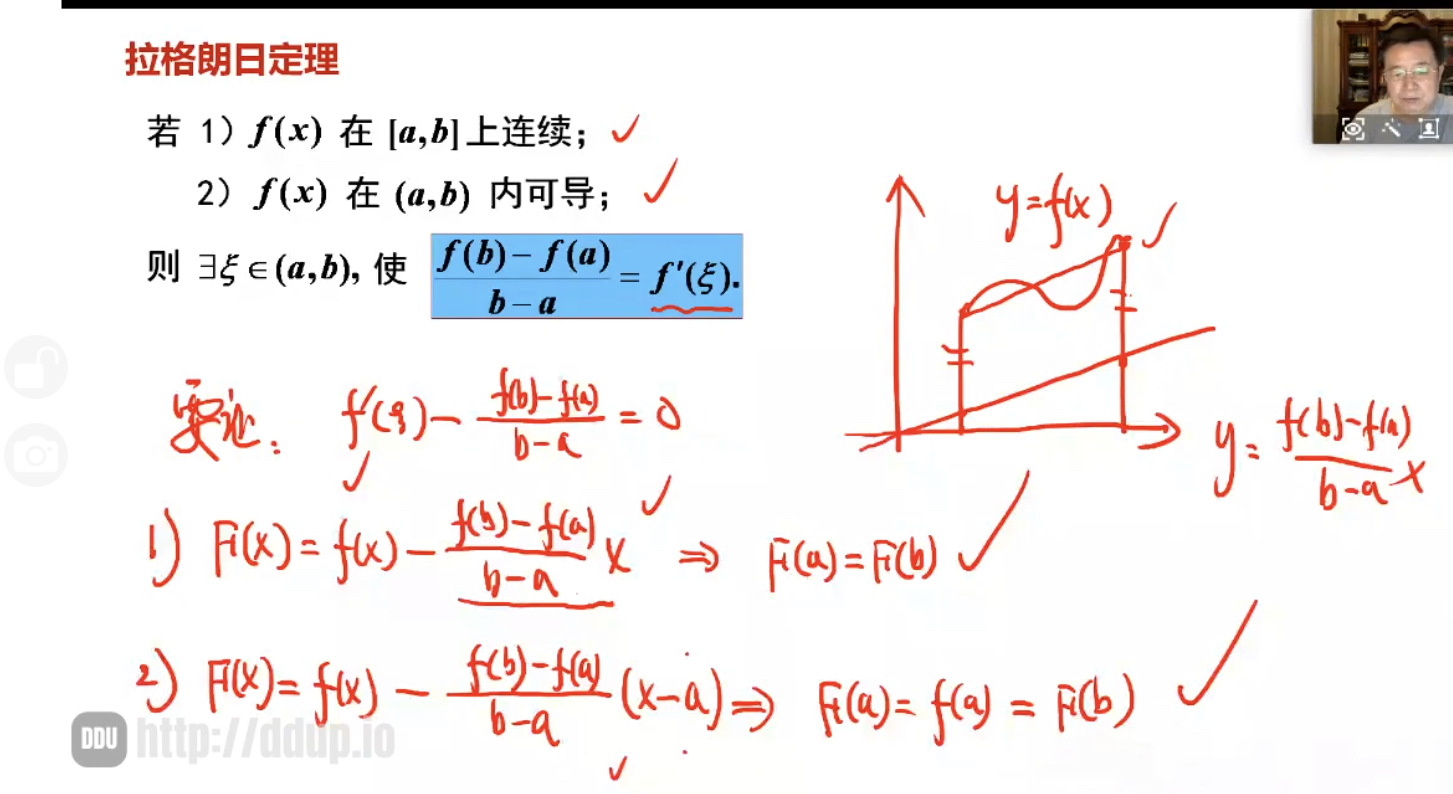 拉格朗日定理
若 1) f(x) 在 [a,b]上连续; ✓
2) f(x) 在 (a,b) 内可导; ✓
则 ∃ξ∈(a,b), 使 (f(b)−f(a))/(b−a) = f′(ξ).
y=f(x) ✓
要证: f′(ξ) − (f(b)−f(a))/(b−a) = 0
y = (f(b)−f(a))/(b−a) x
1) F(x) = f(x) − (f(b)−f(a))/(b−a) x ⇒ F(a)=F(b) ✓
2) F(x) = f(x) − (f(b)−f(a))/(b−a) (x−a) ⇒ F(a)=f(a)=F(b) ✓
DDU http://ddup.io